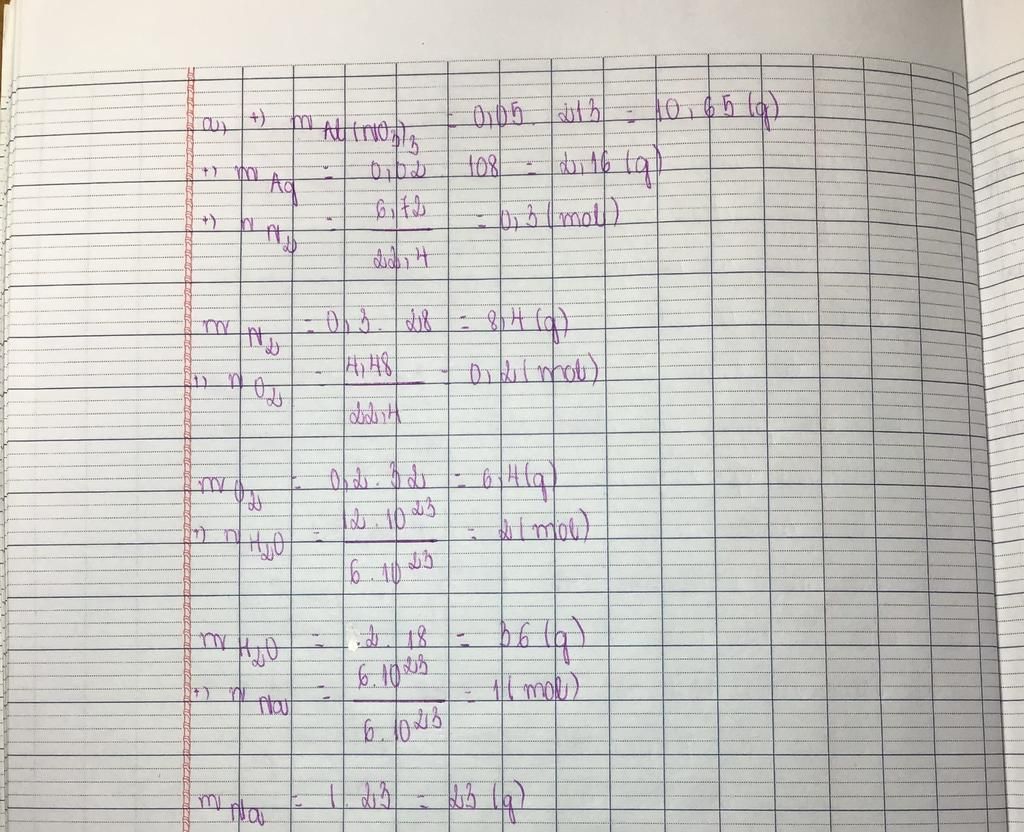 a, +) m Al(NO3)3 = 0,05 . 213 = 10,65 (g)
+) m Ag = 0,02 108 = 2,16 (g)
+) n N2 = 6,72 / 22,4 = 0,3 (mol)
m N2 = 0,3 . 28 = 8,4 (g)
+) n O2 = 4,48 / 22,4 = 0,2 (mol)
m O2 = 0,2 . 32 = 6,4 (g)
+) n H2O = 12.10^23 / 6.10^23 = 2 (mol)
m H2O = 2 . 18 = 36 (g)
+) n Na = 6.10^23 / 6.10^23 = 1 (mol)
m Na = 1 . 23 = 23 (g)